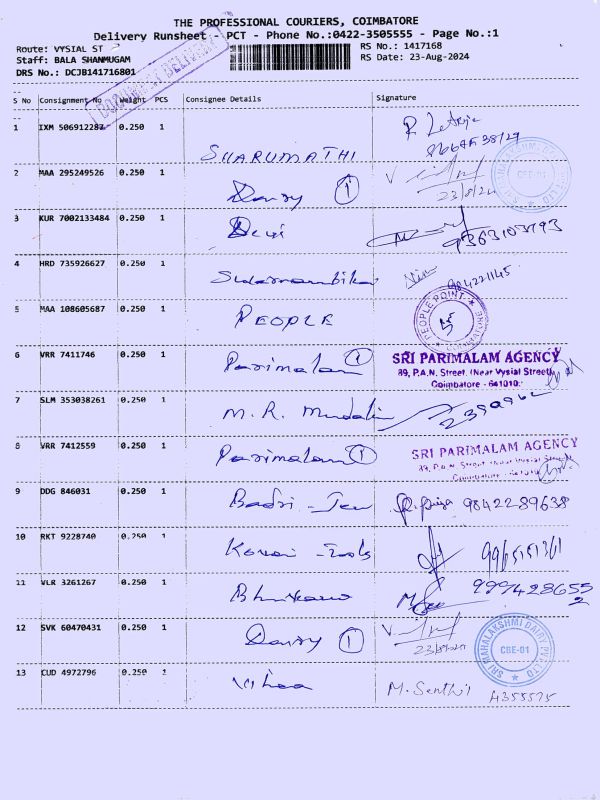 THE PROFESSIONAL COURIERS, COIMBATORE
Delivery Runsheet - PCT - Phone No.:0422-3505555 - Page No.:1
Route: VYSIAL ST
Staff: BALA SHANMUGAM
DRS No.: DCJB141716801
RS No.: 1417168
RS Date: 23-Aug-2024
DOCUMENT DELIVERY
S No Consignment No Weight PCS Consignee Details Signature
1 IXM 506912287 0.250 1 SHARUMATHI
2 MAA 295249526 0.250 1 Dairy 1 23/8/24
SRI MAHALAKSHMI DAIRY PVT LTD CBE-01
3 KUR 7002133484 0.250 1 Devi 9363103793
4 HRD 735926627 0.250 1
5 MAA 108605687 0.250 1 PEOPLE
PEOPLE POINT
6 VRR 7411746 0.250 1 Parimalam 1
SRI PARIMALAM AGENCY
89, P.A.N. Street, (Near Vysial Street),
Coimbatore - 641010.
7 SLM 353038261 0.250 1 M.R. Mudalia
8 VRR 7412559 0.250 1 Parimalam 1
SRI PARIMALAM AGENCY
9 DDG 846031 0.250 1 Badri 9842289638
10 RKT 9228740 0.250 1
11 VLR 3261267 0.250 1
12 SVK 60470431 0.250 1 Dairy 1
SRI MAHALAKSHMI DAIRY PVT LTD CBE-01
13 CUD 4972796 0.250 1 M. Senthil 4355575